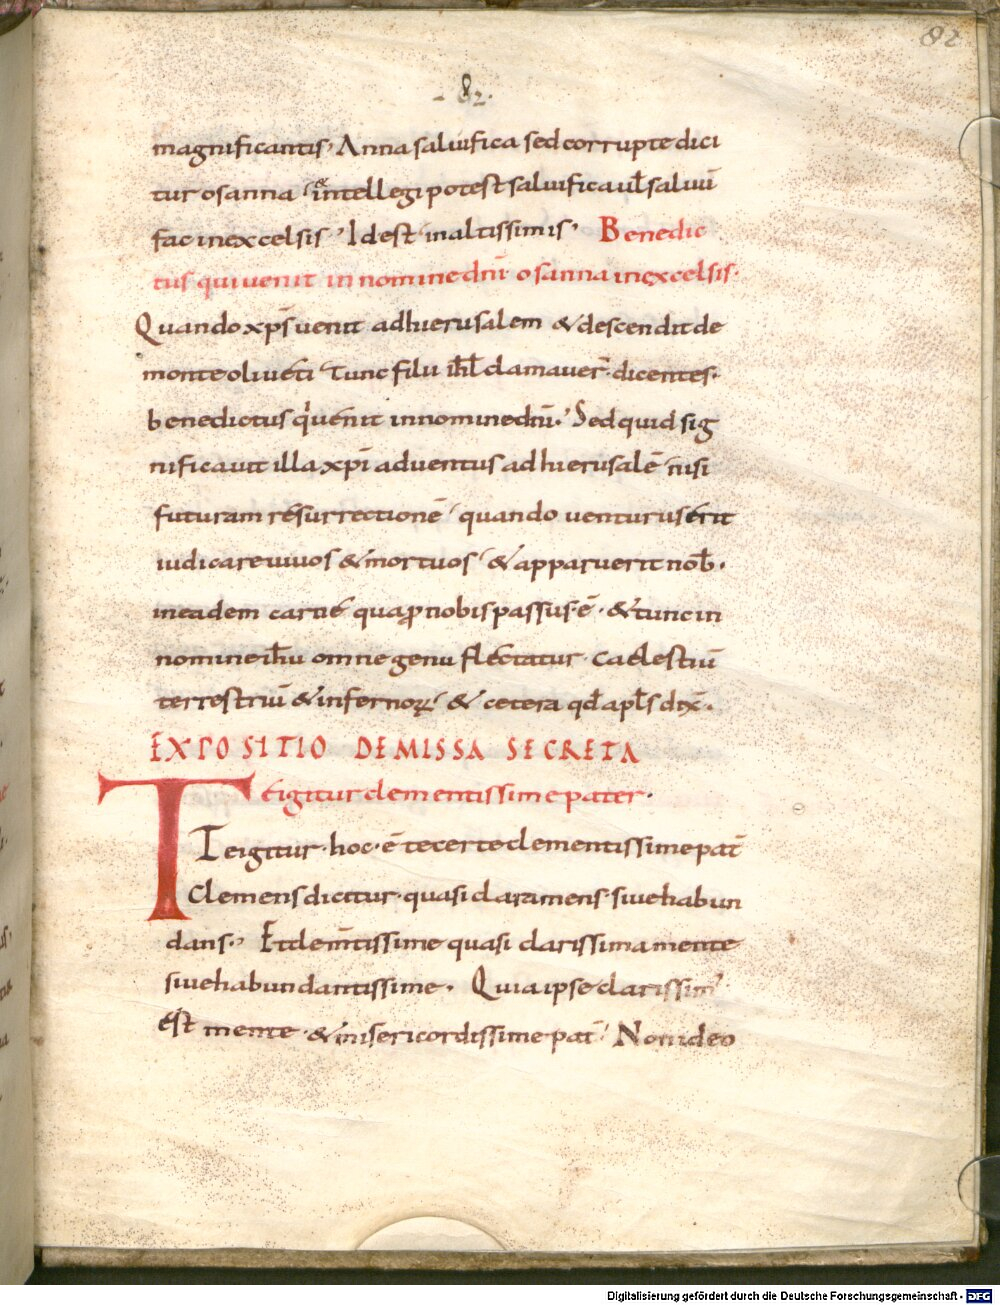 82
- 82.
magnificantis, Anna saluifica sed corrupte dici
tur osanna intellegi potest saluifica ul̄ saluū
fac in excelsis, Id est in altissimis, Benedic
tus qui uenit in nomine dnī osanna in excelsis.
Quando xp̄s uenit ad hierusalem & descendit de
monte oliueti Tunc filii ih̄l clamauer̄ dicentes.
benedictus q uenit in nomine dnī. Sed quid sig
nificauit illa xp̄i aduentus ad hierusalē nisi
futuram resurrectionē quando uenturus erit
iudicare uiuos & mortuos & apparuerit nob̄.
in eadem carne qua ꝓ nobis passus ē. & tunc in
nomine ih̄u omne genu flectatur. Caelestiū
terrestriū & infernoꝝ & cetera qd̄ apl̄s dix̄.
EXPOSITIO DE MISSA SECRETA
Te igitur clementissime pater.
Te igitur. hoc. ē te certe clementissime pat̄
Clemens dicitur. quasi clara mens. siue habun
dans., Et clem̄tissime quasi clarissima mente
siue habundantissime. Quia ipse clarissim'
est mente. & misericordissime pat̄ Non ideo
Digitalisierung gefördert durch die Deutsche Forschungsgemeinschaft - DFG